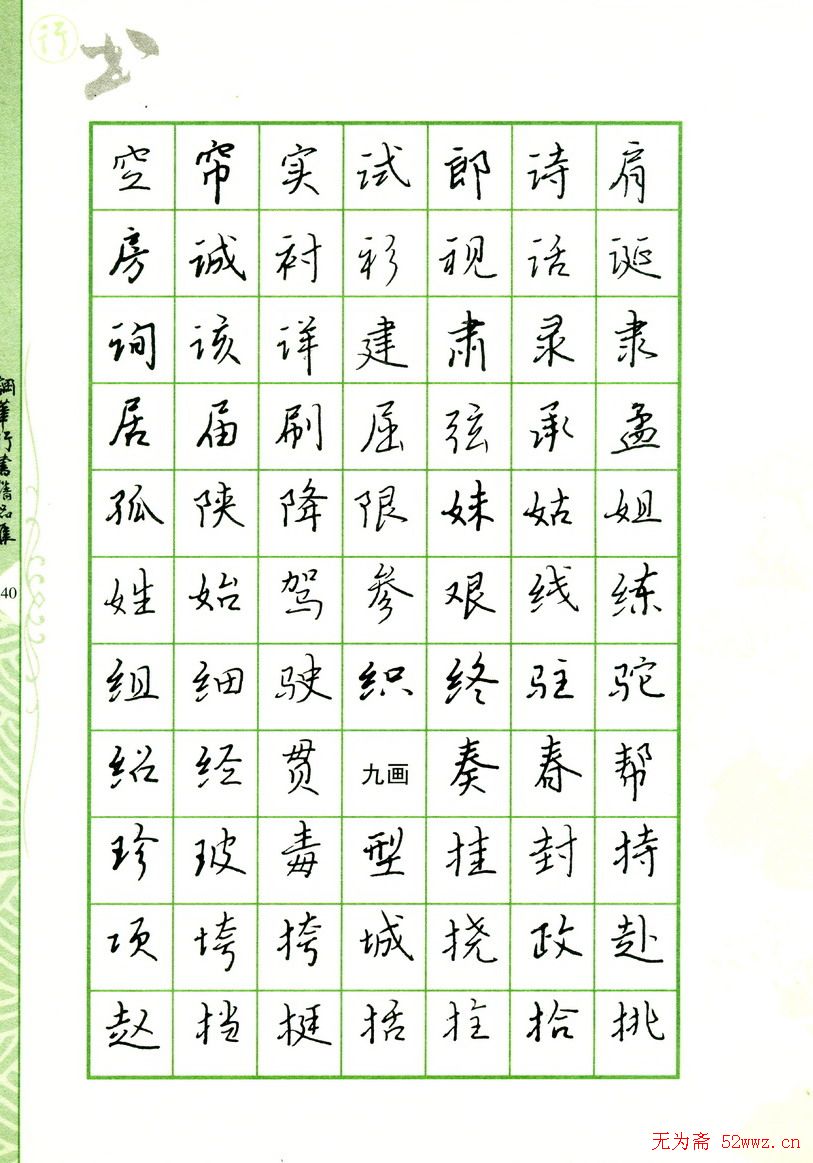 行书
空 帘 实 试 郎 诗 肩
房 诚 衬 衫 视 话 诞
询 该 详 建 肃 录 隶
居 届 刷 屈 弦 承 孟
孤 陕 降 限 妹 姑 姐
姓 始 驾 参 艰 线 练
组 细 驶 织 终 驻 驼
绍 经 贯 九画 奏 春 帮
珍 玻 毒 型 挂 封 持
项 垮 挎 城 挠 政 赴
赵 挡 挺 括 拴 拾 挑
華行書精品集
40
无为斋 52wwz.cn